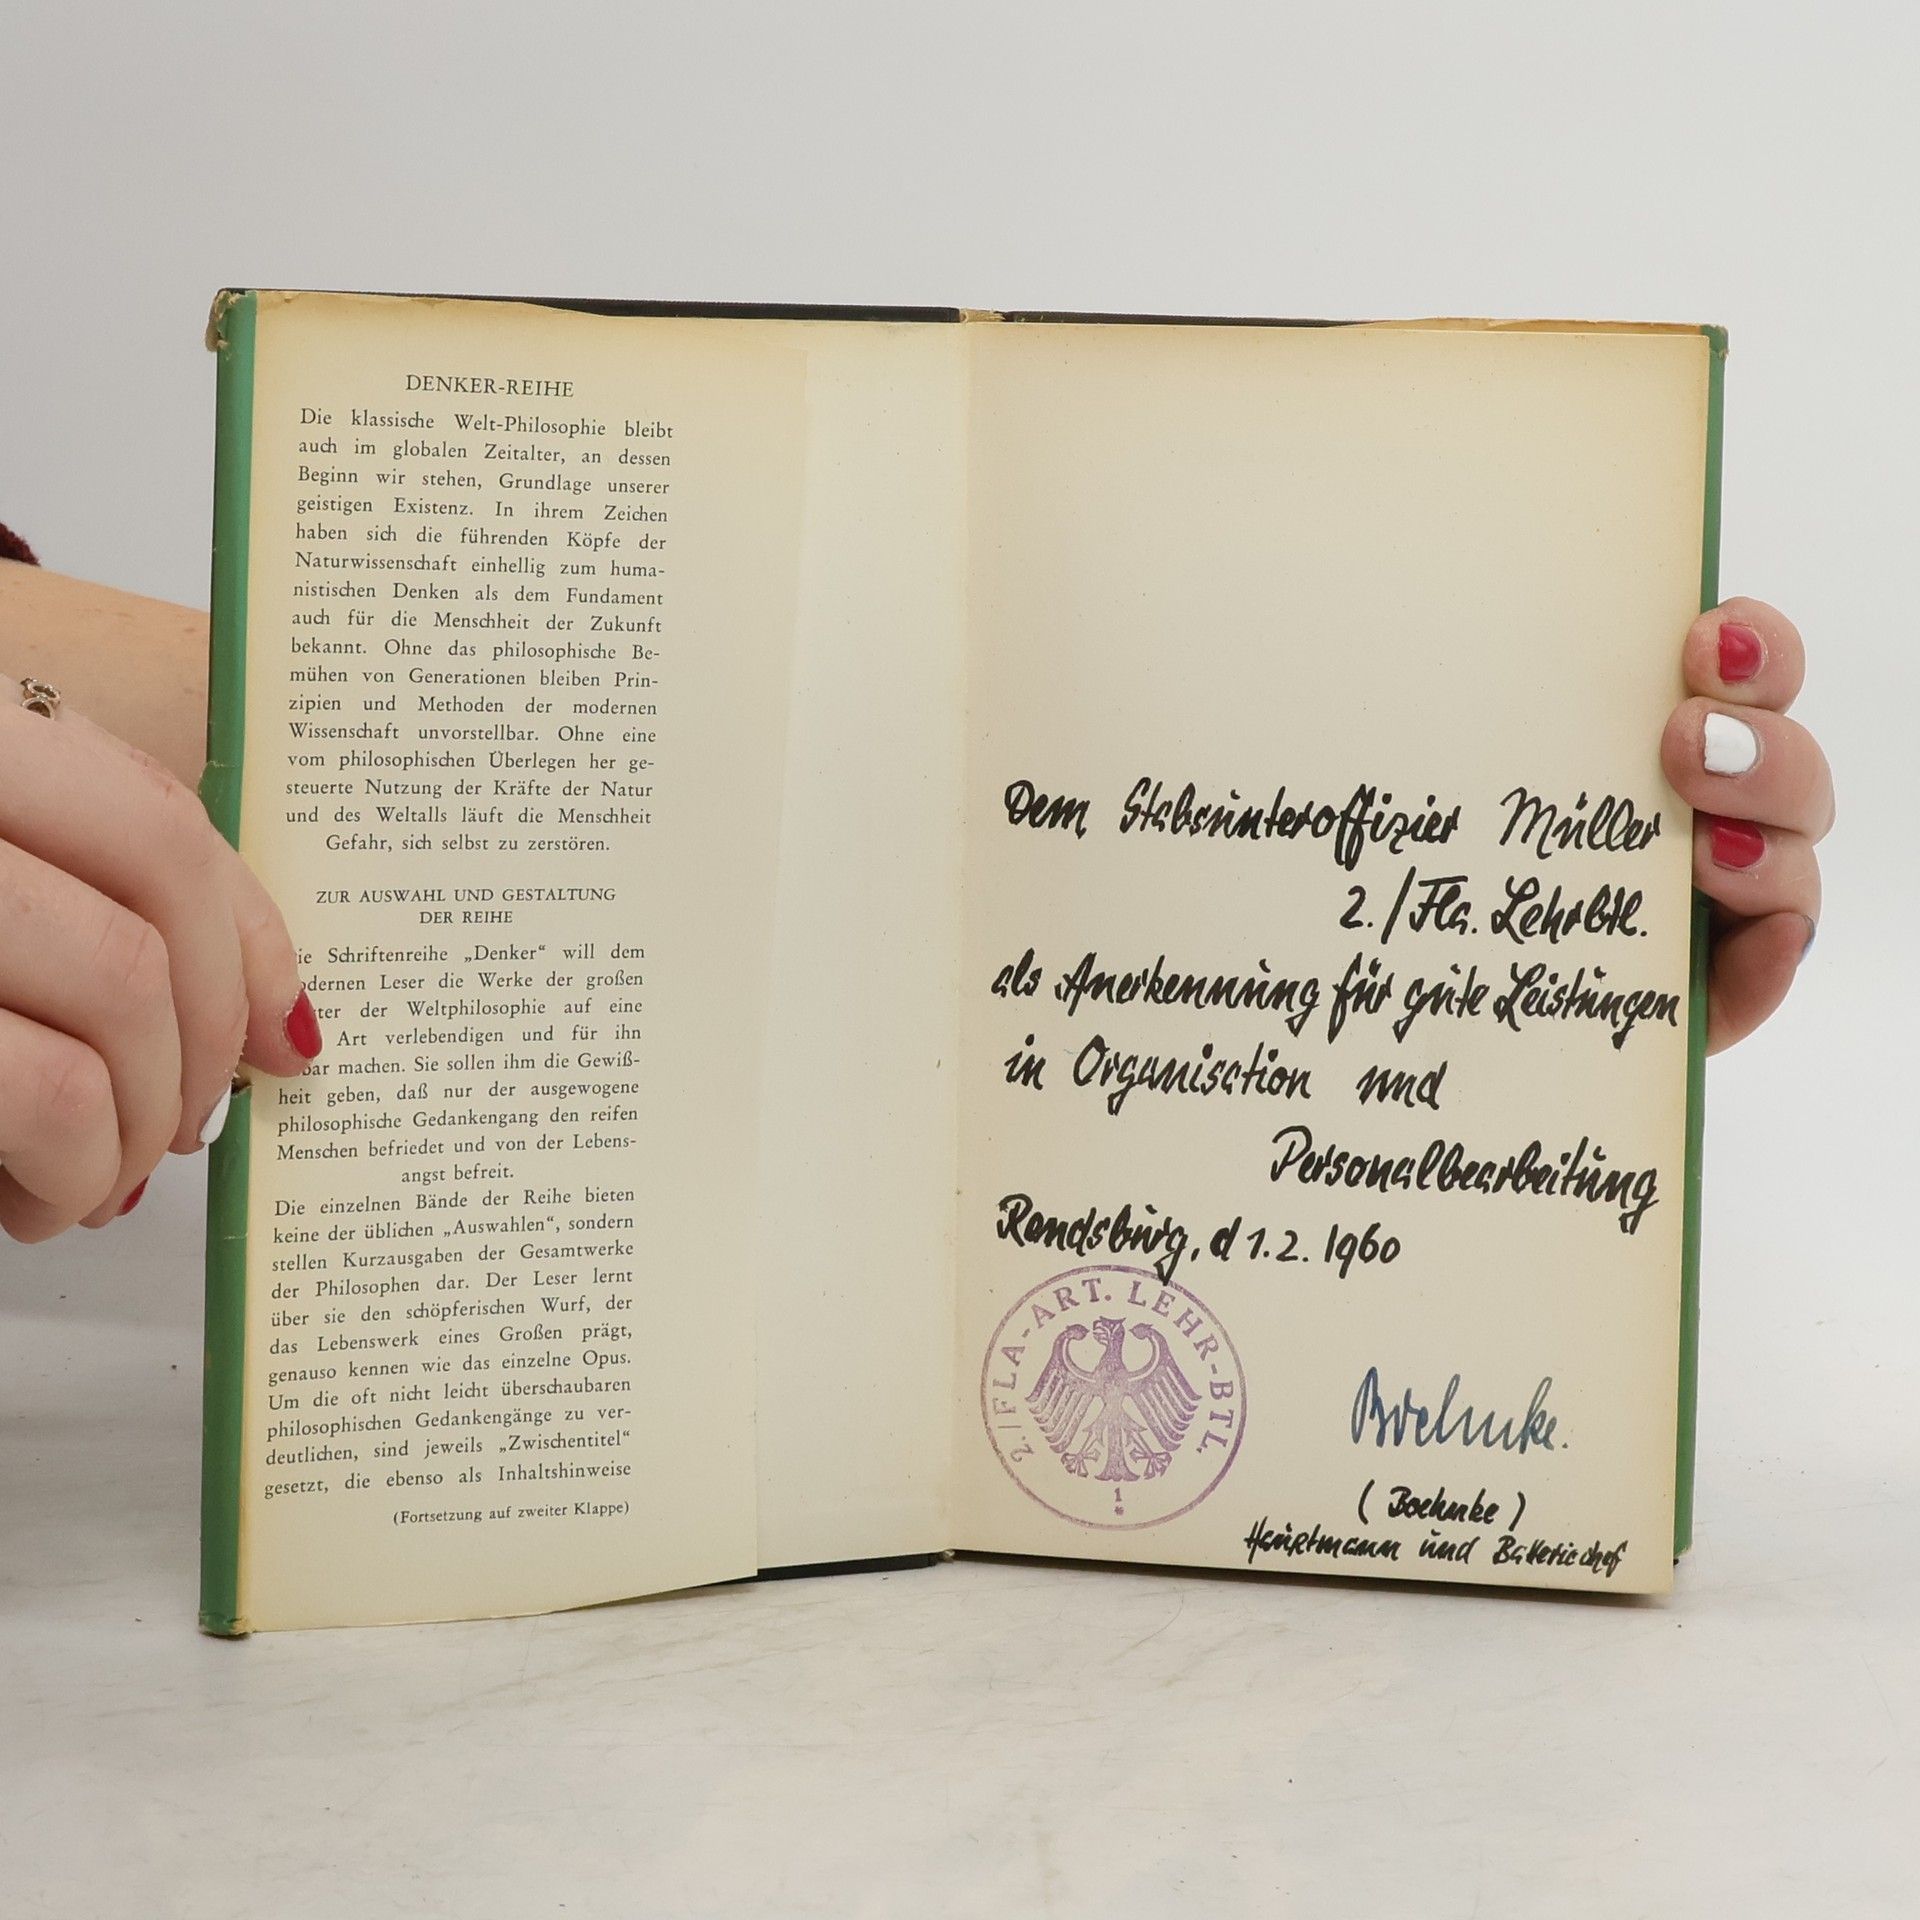 DENKER-REIHE
Die klassische Welt-Philosophie bleibt
auch im globalen Zeitalter, an dessen
Beginn wir stehen, Grundlage unserer
geistigen Existenz. In ihrem Zeichen
haben sich die führenden Köpfe der
Naturwissenschaft einhellig zum huma-
nistischen Denken als dem Fundament
auch für die Menschheit der Zukunft
bekannt. Ohne das philosophische Be-
mühen von Generationen bleiben Prin-
zipien und Methoden der modernen
Wissenschaft unvorstellbar. Ohne eine
vom philosophischen Überlegen her ge-
steuerte Nutzung der Kräfte der Natur
und des Weltalls läuft die Menschheit
Gefahr, sich selbst zu zerstören.
ZUR AUSWAHL UND GESTALTUNG
DER REIHE
ie Schriftenreihe „Denker“ will dem
odernen Leser die Werke der großen
der Weltphilosophie auf eine
Art verlebendigen und für ihn
bar machen. Sie sollen ihm die Gewiß-
heit geben, daß nur der ausgewogene
philosophische Gedankengang den reifen
Menschen befriedet und von der Lebens-
angst befreit.
Die einzelnen Bände der Reihe bieten
keine der üblichen „Auswahlen“, sondern
stellen Kurzausgaben der Gesamtwerke
der Philosophen dar. Der Leser lernt
über sie den schöpferischen Wurf, der
das Lebenswerk eines Großen prägt,
genauso kennen wie das einzelne Opus.
Um die oft nicht leicht überschaubaren
philosophischen Gedankengänge zu ver-
deutlichen, sind jeweils „Zwischentitel“
gesetzt, die ebenso als Inhaltshinweise
(Fortsetzung auf zweiter Klappe)
Dem Stabsunteroffizier Müller
2./Fla. Lehrbtl.
als Anerkennung für gute Leistungen
in Organisation und
Personalbearbeitung
Rendsburg, d 1.2. 1960
2./FLA-ART. LEHR-BTL.
1
Boehmke.
(Boehmke)
Hauptmann und Batteriechef